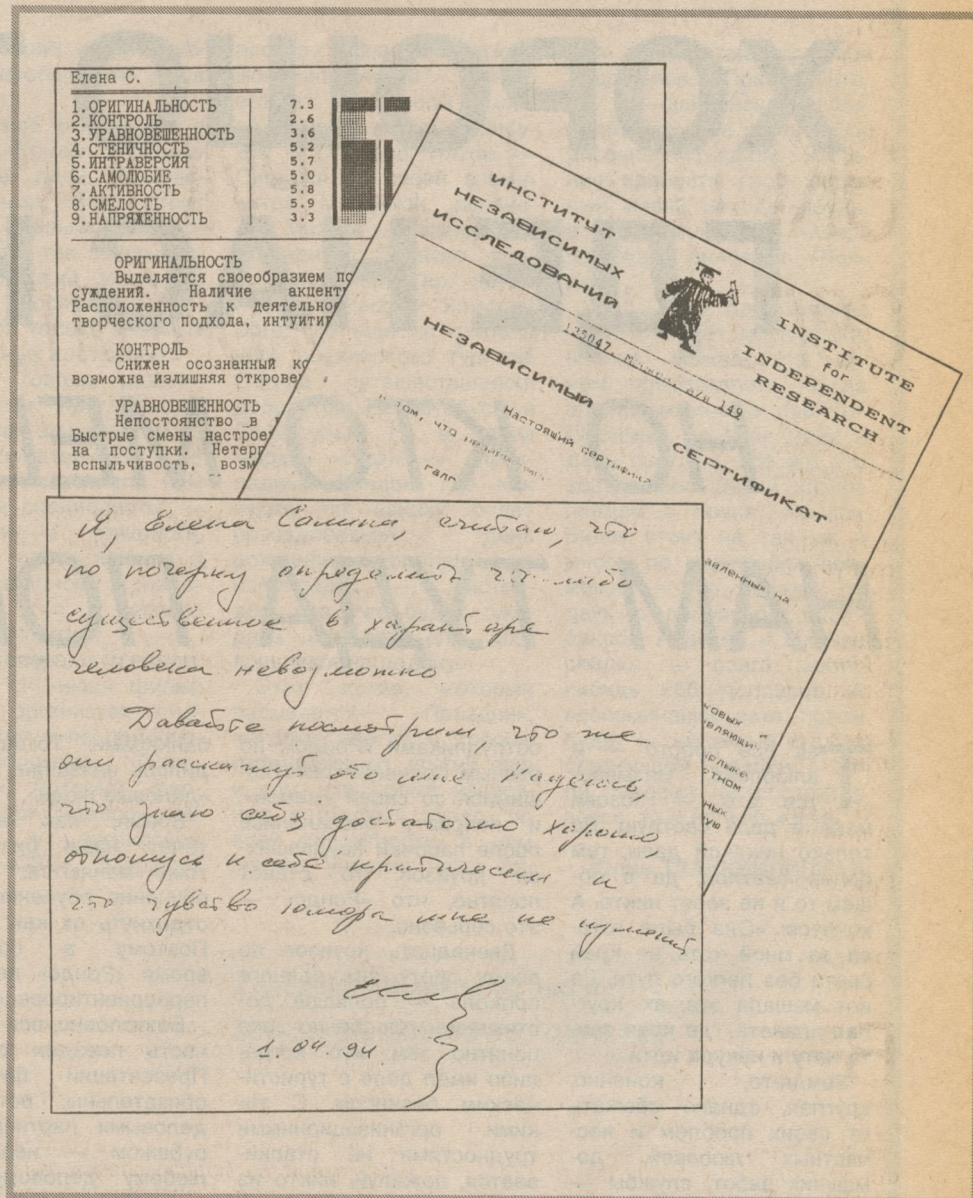 Елена С.
1.ОРИГИНАЛЬНОСТЬ 7.3
2.КОНТРОЛЬ 2.6
3.УРАВНОВЕШЕННОСТЬ 3.6
4.СТЕНИЧНОСТЬ 5.2
5.ИНТРАВЕРСИЯ 5.7
6.САМОЛЮБИЕ 5.0
7.АКТИВНОСТЬ 5.8
8.СМЕЛОСТЬ 5.9
9.НАПРЯЖЕННОСТЬ 3.3
ОРИГИНАЛЬНОСТЬ
Выделяется своеобразием по
суждений. Наличие акцент
Расположенность к деятельно
творческого подхода, интуити
КОНТРОЛЬ
Снижен осознанный ко
возможна излишняя открове
УРАВНОВЕШЕННОСТЬ
Непостоянство в
Быстрые смены настрое
на поступки. Нетерп
вспыльчивость, возм
ИНСТИТУТ
НЕЗАВИСИМЫХ
ИССЛЕДОВАНИЙ
INSTITUTE
for
INDEPENDENT
RESEARCH
125047, Москва, а/я 149
НЕЗАВИСИМЫЙ СЕРТИФИКАТ
Настоящий сертифика
том, что
гало
авленных на
ковых
вляющи
рлыке
стном
ных
кую
Я, Елена Салина, считаю, что
по почерку определить что-либо
существенное в характере
человека невозможно
Давайте посмотрим, что же
они расскажут обо мне Надеюсь,
что знаю себя достаточно хорошо,
отношусь к себе критически и
что чувство юмора мне не изменит
1.04.94